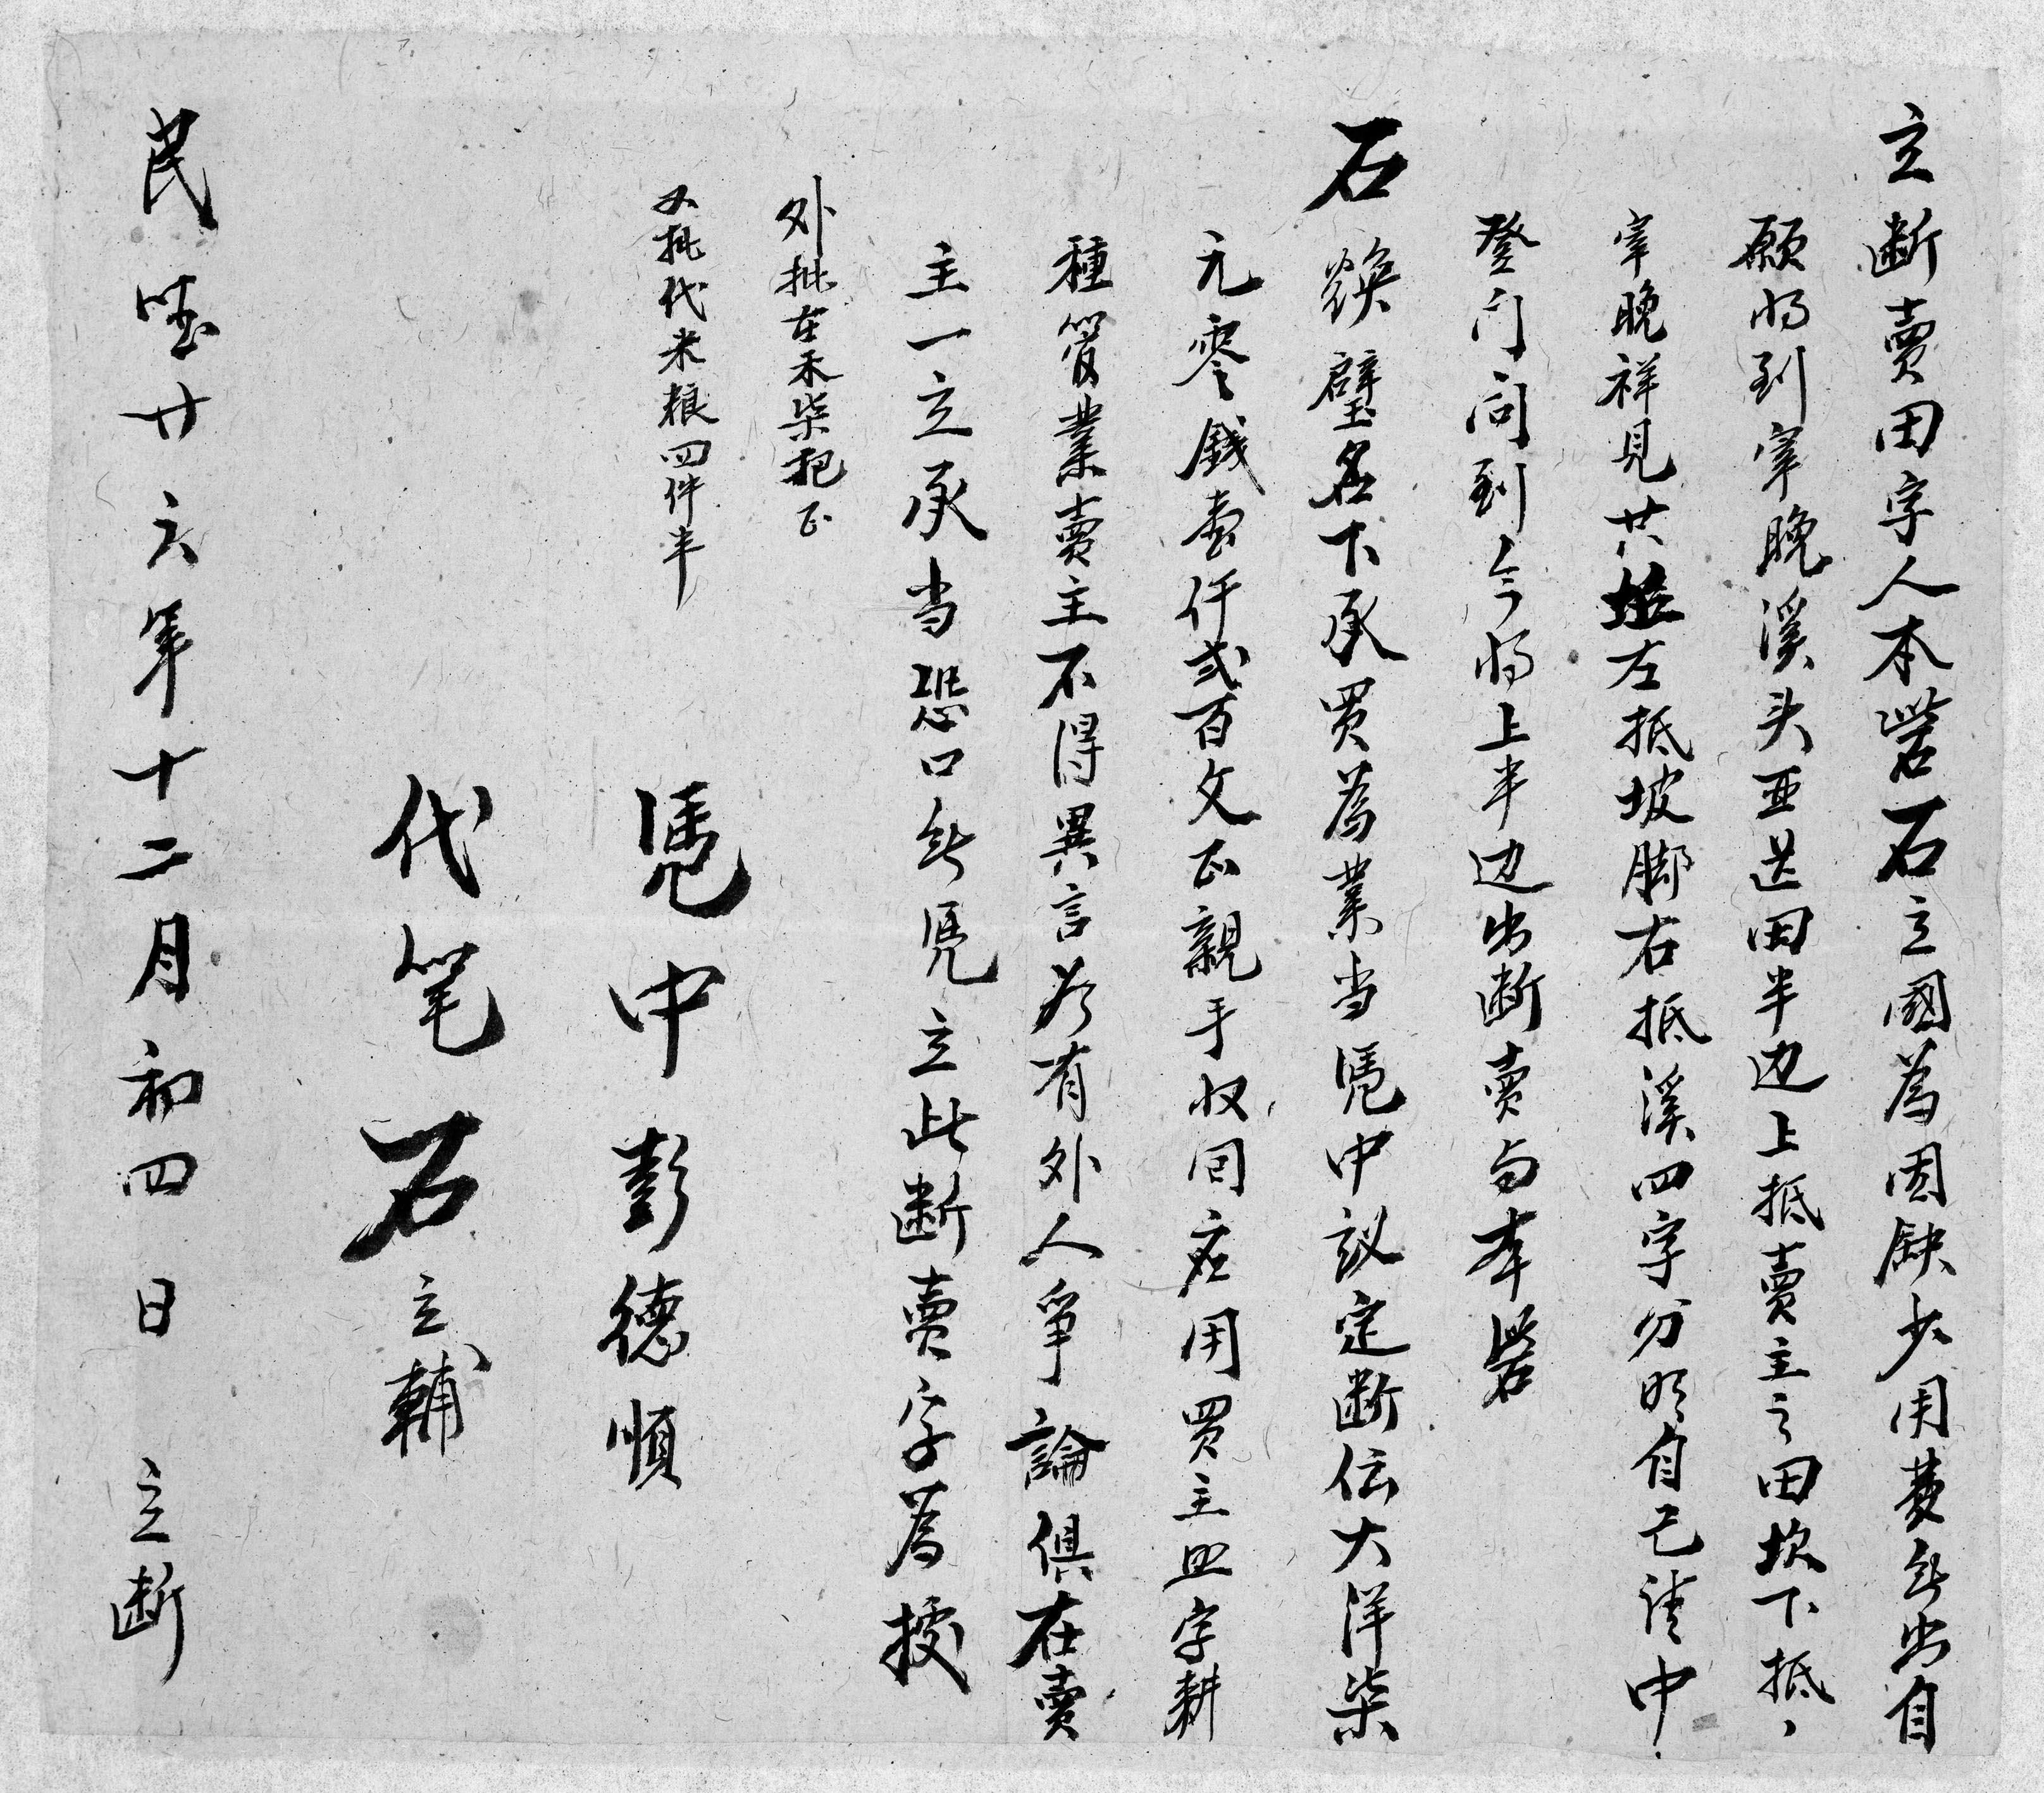 立断賣田字人本砦石立國為因缺少用費無出自
願将到宰晚溪头亚送田半边上抵賣主之田坎下抵
宰晚祥見共坵左抵坡脚右抵溪四字分明自己请中
登门问到今将上半边出断賣与本砦
石燦璧名下承買為業当凭中議定断伝大洋柒
元零錢壹仟弍百文正親手收回应用買主照字耕
種管業賣主不得異言若有外人爭論俱在賣
主一立承当恐口無凭立此断賣字為據
外批在禾柴把正
又批代米粮四件半
凭中彭德順
代笔石立輔
民國廿六年十二月初四日 立断